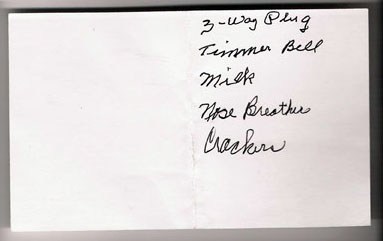 3-Way Plug
Timmer Bell
Milk
Nose Breather
Crackers